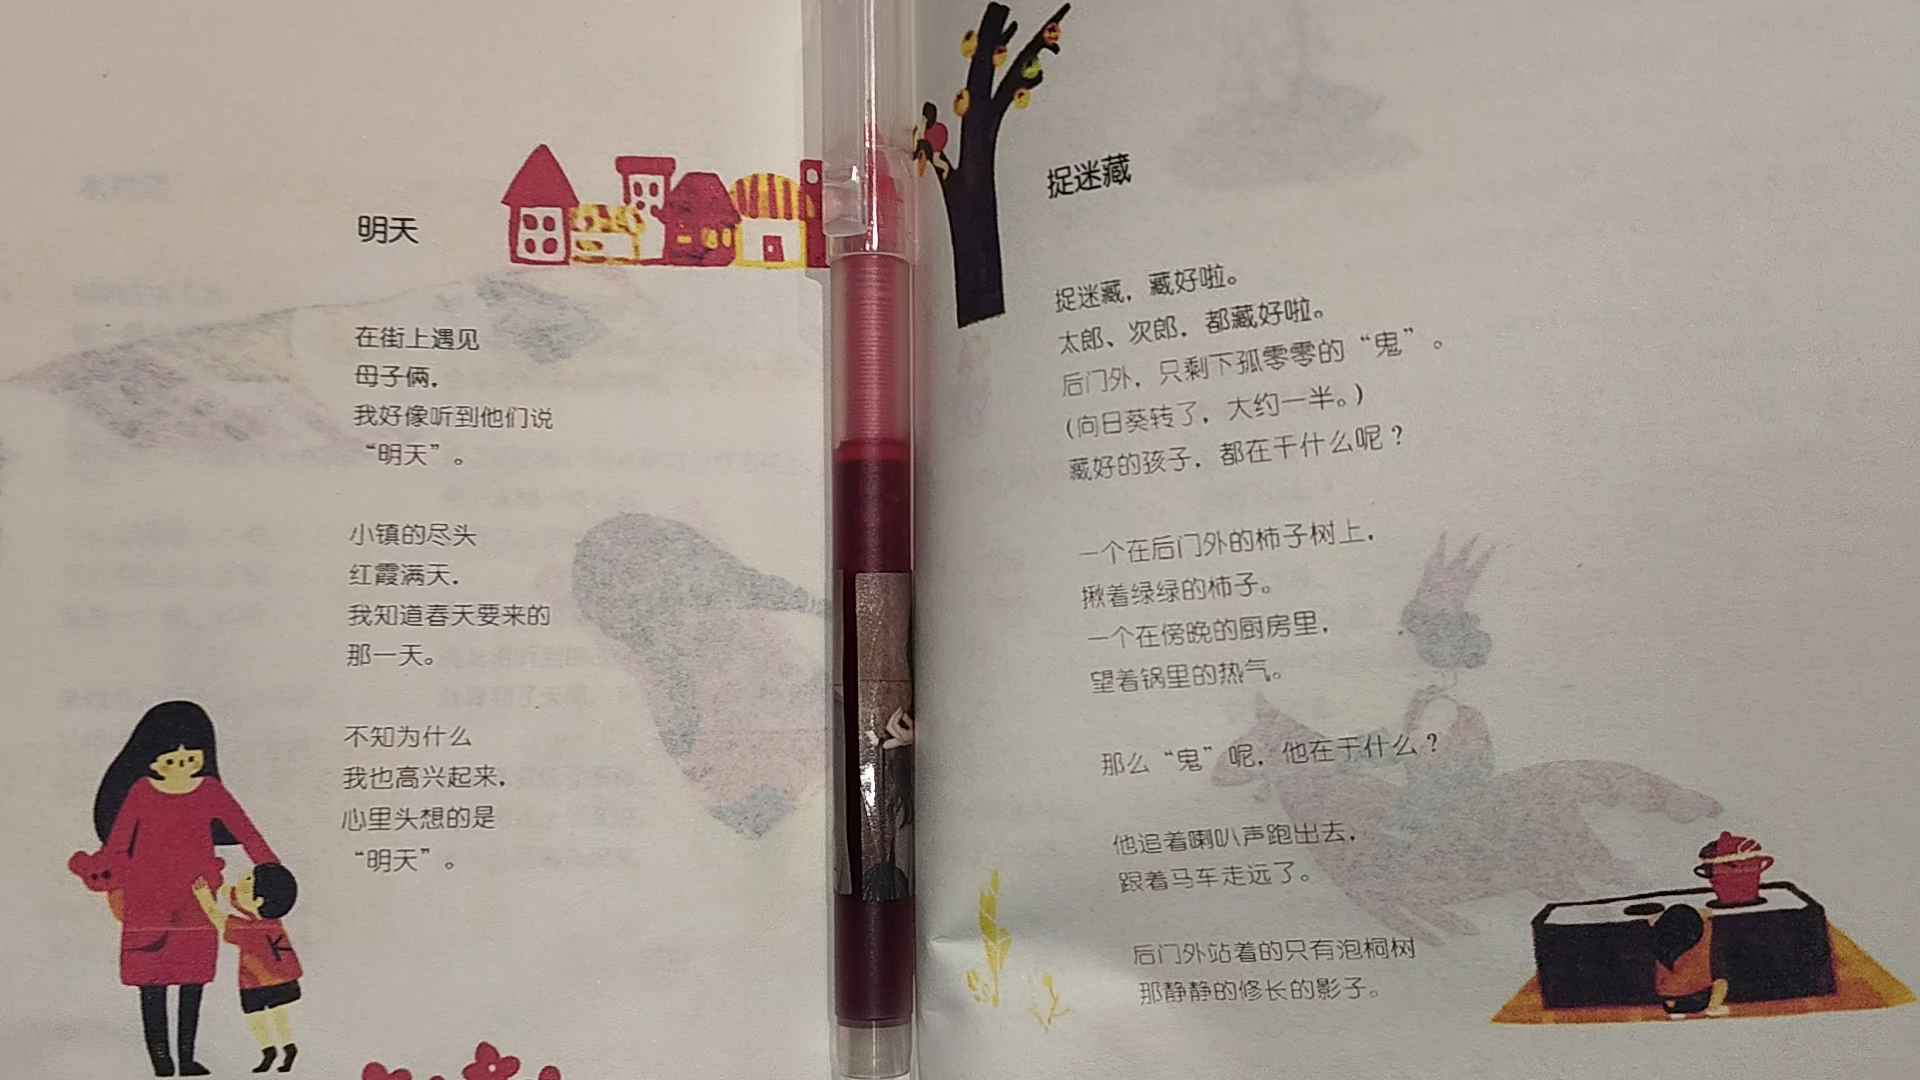 明天
在街上遇见
母子俩，
我好像听到他们说
“明天”。
小镇的尽头
红霞满天，
我知道春天要来的
那一天。
不知为什么
我也高兴起来，
心里头想的是
“明天”。
捉迷藏
捉迷藏，藏好啦。
太郎、次郎，都藏好啦。
后门外，只剩下孤零零的“鬼”。
(向日葵转了，大约一半。)
藏好的孩子，都在干什么呢？
一个在后门外的柿子树上，
揪着绿绿的柿子。
一个在傍晚的厨房里，
望着锅里的热气。
那么“鬼”呢，他在干什么？
他追着喇叭声跑出去，
跟着马车走远了。
后门外站着的只有泡桐树
那静静的修长的影子。
K